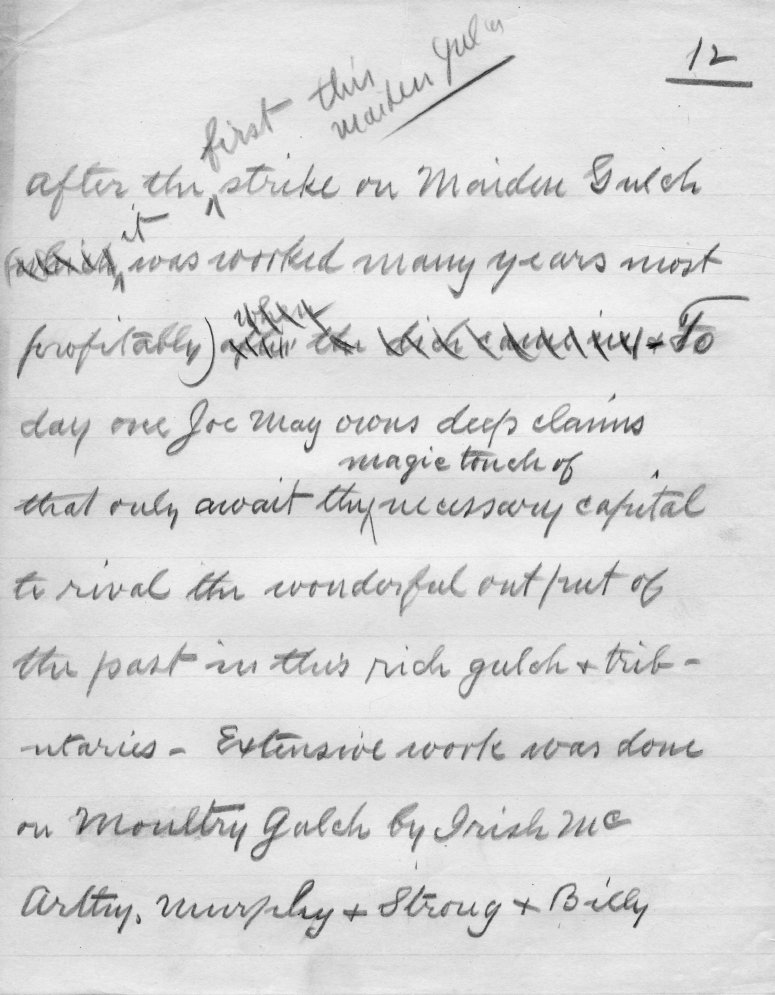 12
first this
maiden gulch
after the ^ strike on Maiden Gulch
it
(which ^ was worked many years most
when
profitably) the rich + To
day one Joe May owns deep claims
magic touch of
that only await the necessary capital
to rival the wonderful output of
the past in this rich gulch + trib-
utaries - Extensive work was done
on Moultry Gulch by Irish Mc
Arthy, Murphy + Strong + Billy